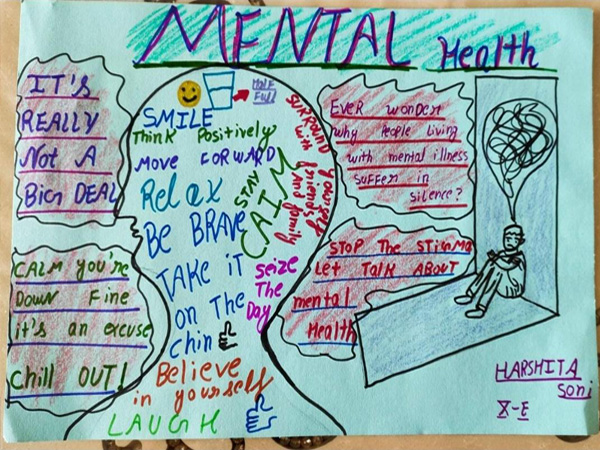 MENTAL Health
IT'S
REALLY
Not A
BiG DEAL
CALM you're
DOWN Fine
it's an excuse
Chill OUT!
HALF
FULL
SMILE
Think Positively
MOVE FORWARD
Relax
STAY
CALM
BE BRAVE
TAKE iT
on The
chin
SURROUND yourself
with friends
and family
SEIZE
The
Day
Believe
in yourself
LAUGH
EVER wonder
why People living
with mental illness
SUFFER in
silence?
STOP The STIGMA
LeT TALK ABOUT
mental
Health
HARSHITA
Soni
X-E